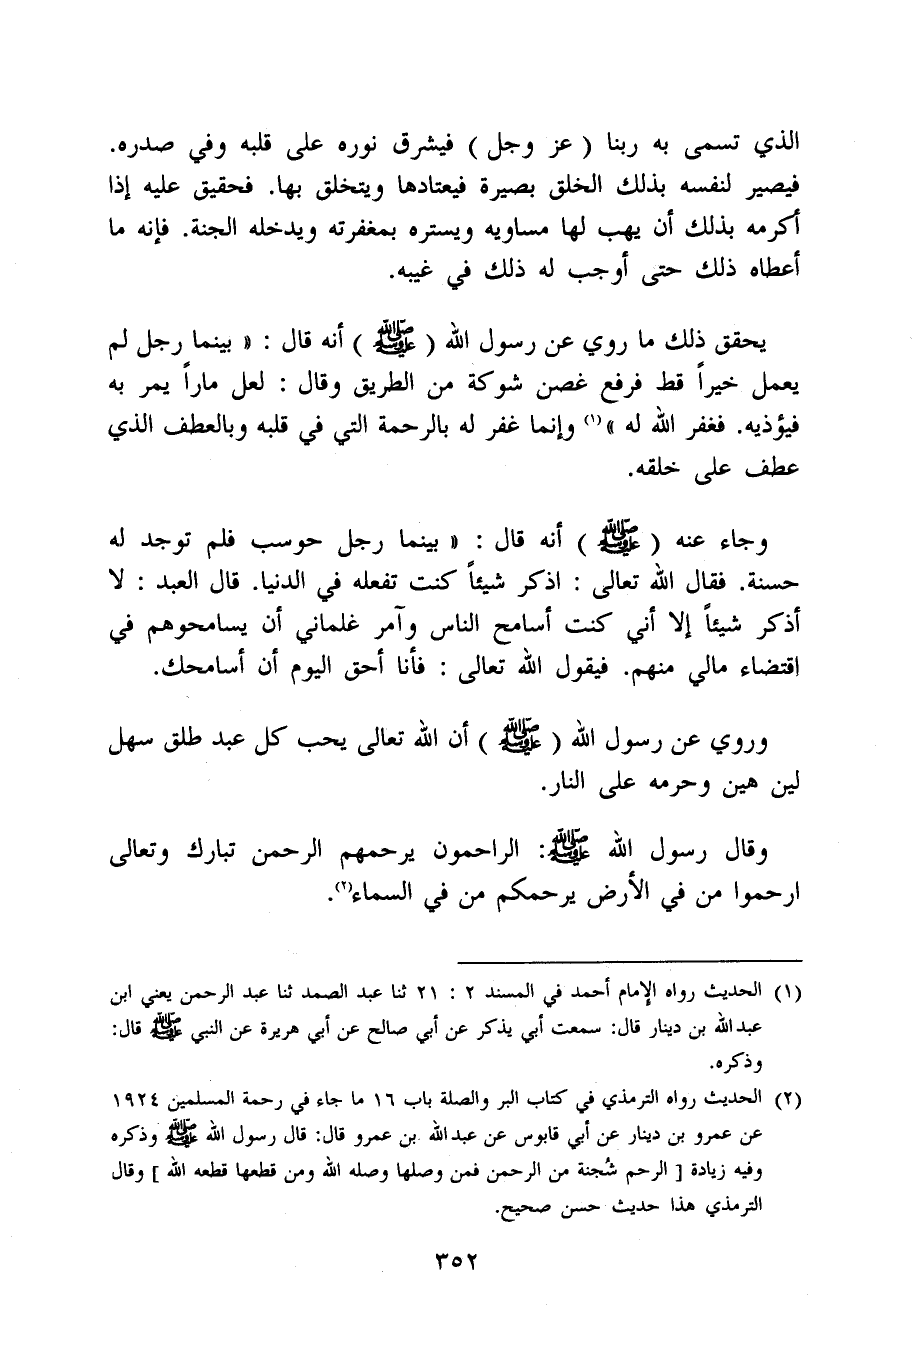 الذي تسمى به ربنا ( عز وجل ) فيشرق نوره على قلبه وفي صدره.
فيصير لنفسه بذلك الخلق بصيرة فيعتادها ويتخلق بها. فحقيق عليه إذا
أكرمه بذلك أن يهب لها مساويه ويستره بمغفرته ويدخله الجنة. فإنه ما
أعطاه ذلك حتى أوجب له ذلك في غيبه.
يحقق ذلك ما روي عن رسول الله ( ﷺ ) أنه قال : « بينما رجل لم
يعمل خيراً قط فرفع غصن شوكة من الطريق وقال : لعل ماراً يمر به
فيؤذيه. فغفر الله له »(١) وإنما غفر له بالرحمة التي في قلبه وبالعطف الذي
عطف على خلقه.
وجاء عنه ( ﷺ ) أنه قال : « بينما رجل حوسب فلم توجد له
حسنة. فقال الله تعالى : اذكر شيئاً كنت تفعله في الدنيا. قال العبد : لا
أذكر شيئاً إلا أني كنت أسامح الناس وآمر غلماني أن يسامحوهم في
اقتضاء مالي منهم. فيقول الله تعالى : فأنا أحق اليوم أن أسامحك.
وروي عن رسول الله ( ﷺ ) أن الله تعالى يحب كل عبد طلق سهل
لين هين وحرمه على النار.
وقال رسول الله ﷺ: الراحمون يرحمهم الرحمن تبارك وتعالى
ارحموا من في الأرض يرحمكم من في السماء(٢).
(١) الحديث رواه الإمام أحمد في المسند ٢ : ٢١ ثنا عبد الصمد ثنا عبد الرحمن يعني ابن
عبدالله بن دينار قال: سمعت أبي يذكر عن أبي صالح عن أبي هريرة عن النبي ﷺ قال:
وذكره.
(٢) الحديث رواه الترمذي في كتاب البر والصلة باب ١٦ ما جاء في رحمة المسلمين ١٩٢٤
عن عمرو بن دينار عن أبي قابوس عن عبدالله بن عمرو قال: قال رسول الله ﷺ وذكره
وفيه زيادة [ الرحم شُجنة من الرحمن فمن وصلها وصله الله ومن قطعها قطعه الله ] وقال
الترمذي هذا حديث حسن صحيح.
٣٥٢